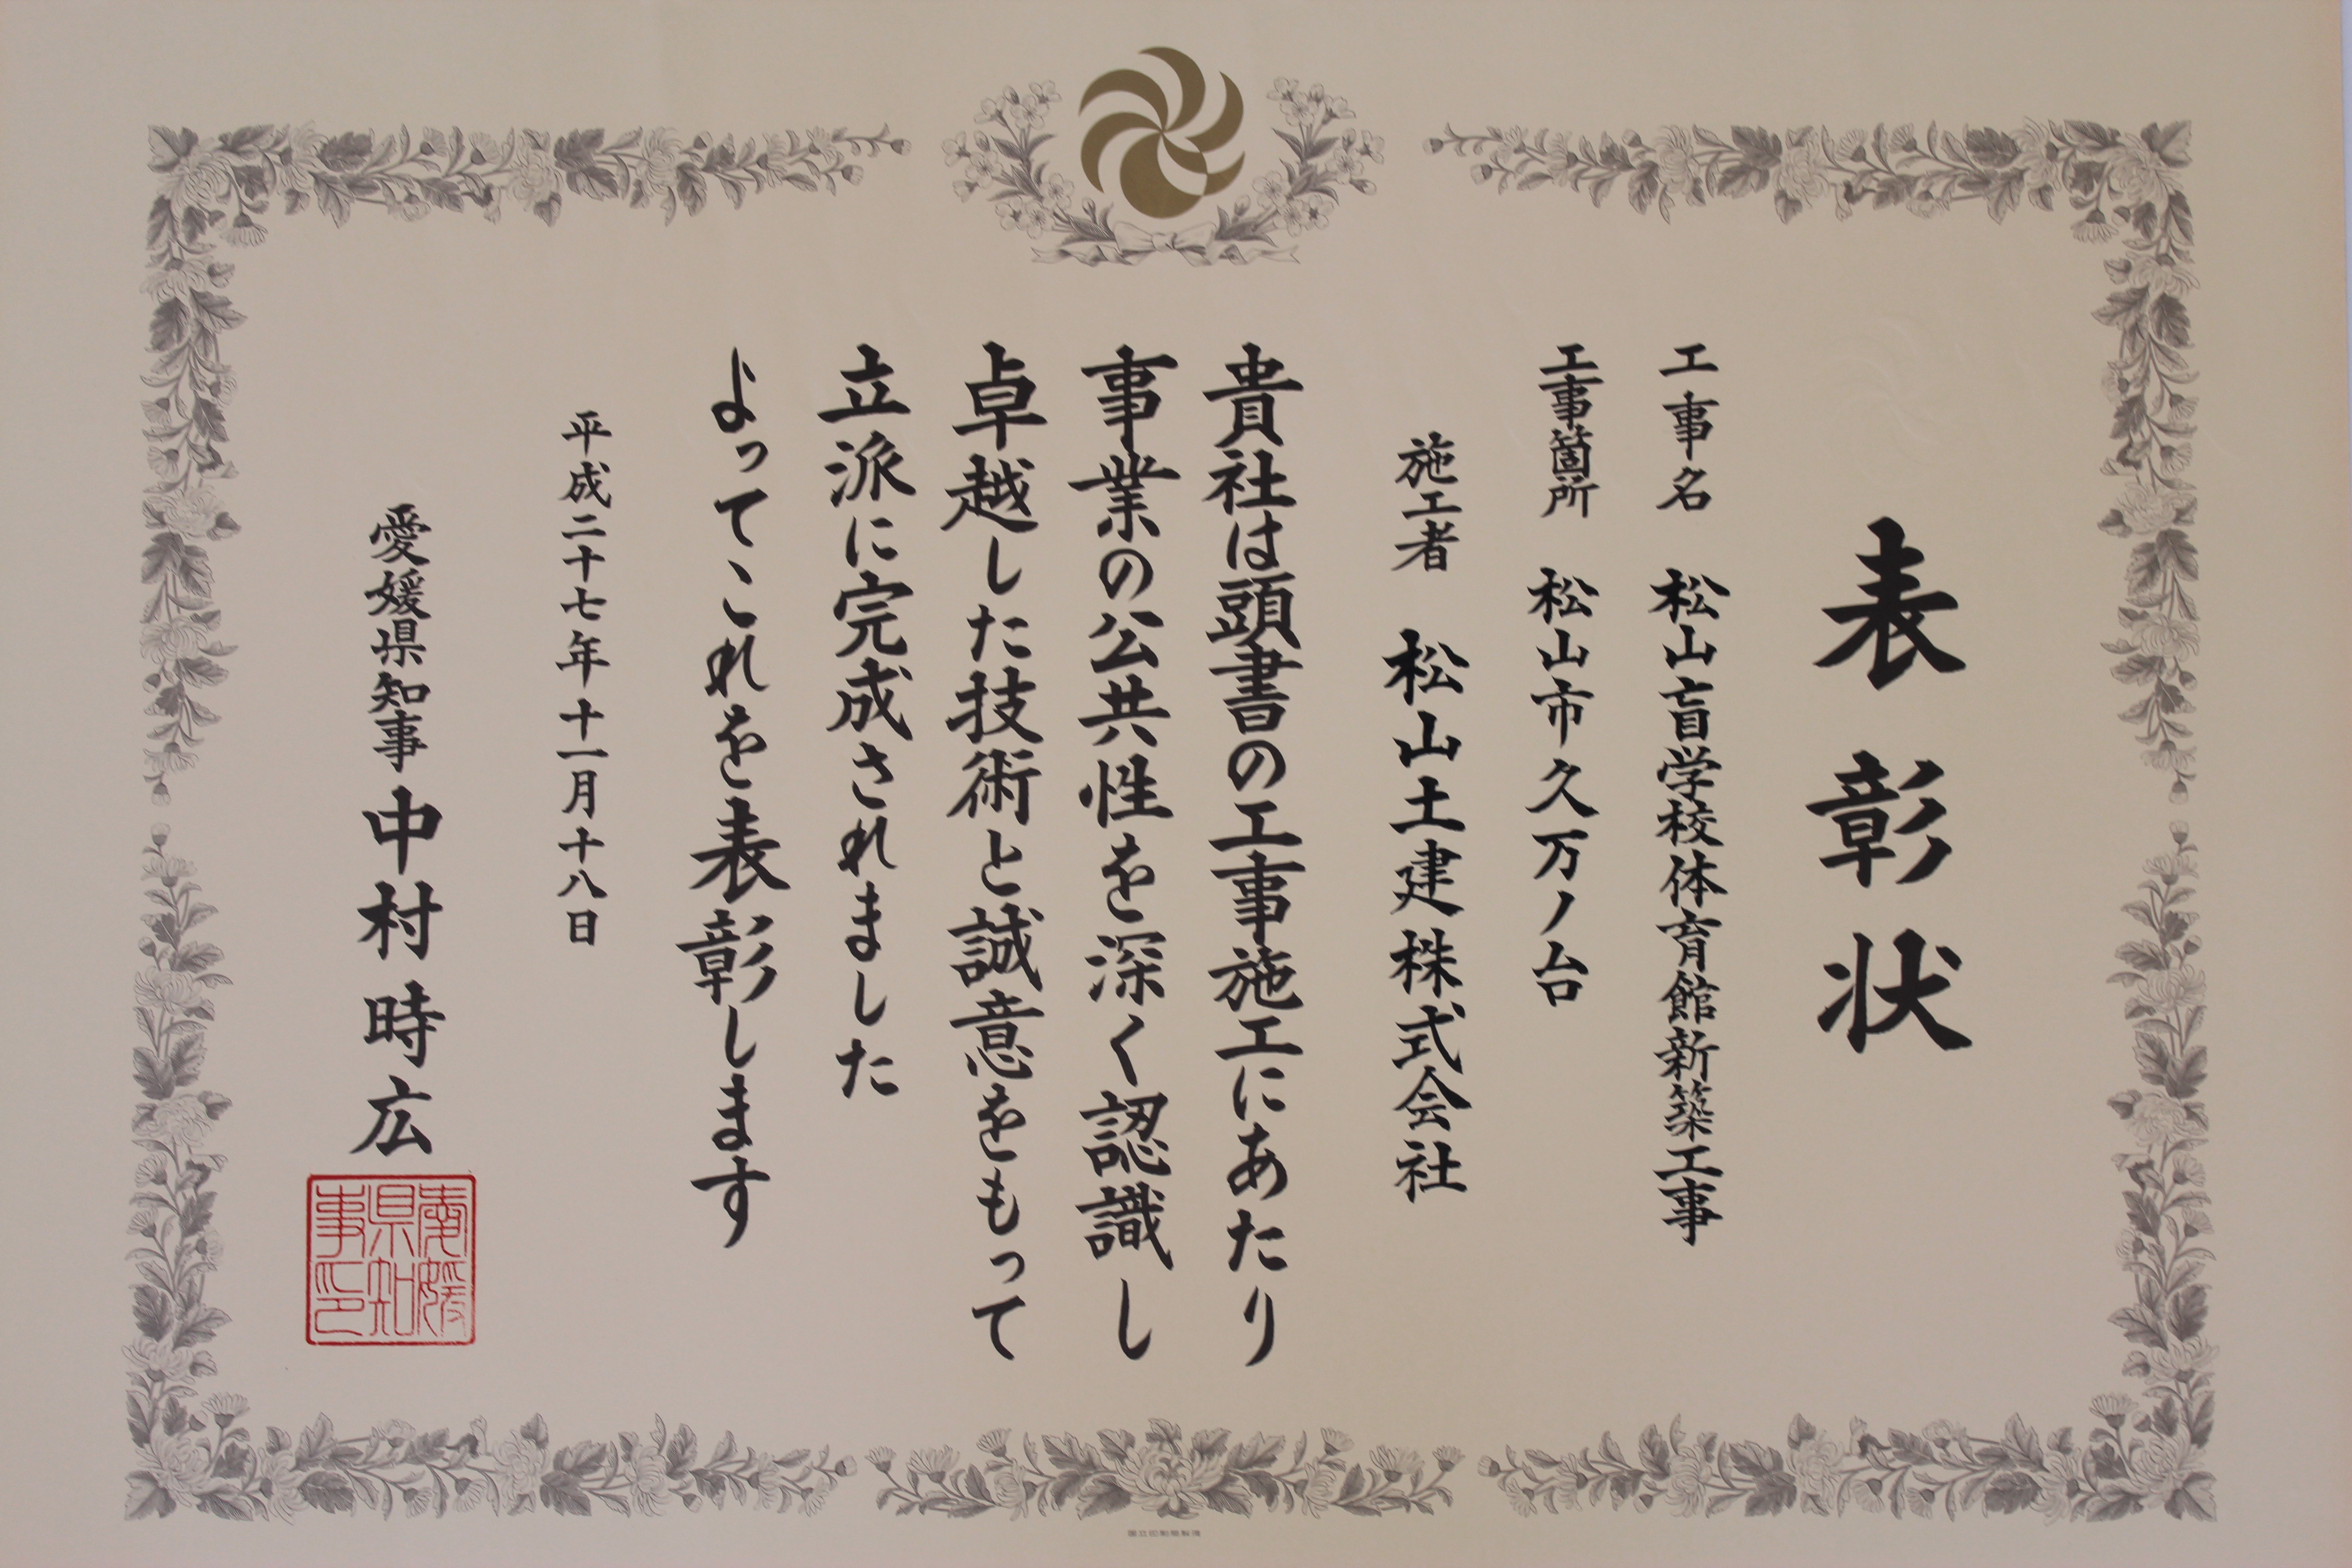 表彰状
工事名 松山盲学校体育館新築工事
工事箇所 松山市久万ノ台
施工者 松山土建株式会社
貴社は頭書の工事施工にあたり
事業の公共性を深く認識し
卓越した技術と誠意をもって
立派に完成されました
よって、これを表彰します
平成二十七年十一月十八日
愛媛県知事 中村時広
愛媛
県知
事印
国立印刷局製造